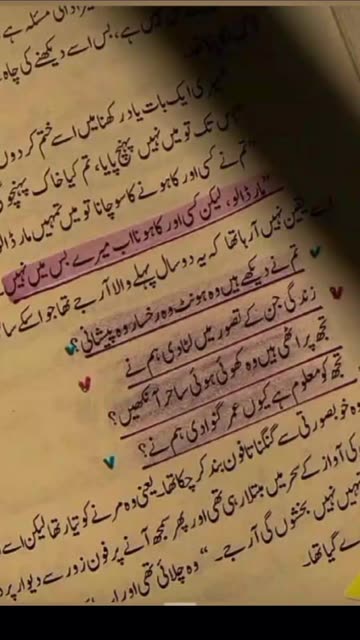 ہے، بس اسے دیکھنے کی چاہ
ایک بات یاد رکھنا میں اسے ختم کر دوں
تک تو میں نہیں پہنچ پایا، تم کیا خاک پہنچو
تم نے کسی اور کا ہونے کا سوچا نا تو میں تمہیں مار ڈالوں
"مار ڈالو، لیکن کسی اور کا ہونا اب میرے بس میں نہیں
یقین نہیں آرہا تھا کہ یہ دو سال پہلے والا آر جے تھا جو اسکے
تم نے دیکھے ہیں وہ ہونٹ وہ رخسار وہ پیشانی؟
زندگی جن کے تصور میں لٹا دی ہم نے
تجھ پر اٹھی ہیں وہ کھوئی ہوئی ساحر آنکھیں؟
تجھ کو معلوم ہے کیوں عمر گنوا دی ہم نے؟
وہ خوبصورتی سے گنگناتا فون بند کر چکا تھا۔ یعنی وہ مرنے کو تیار تھا لیکن اسے
کی آواز کے سحر میں مبتلا رہی تھی اور پھر سمجھ آنے پر فون زور سے دیوار پر
تمہیں نہیں بخشوں گی آر جے۔" وہ چلائی تھی اور
گیا تھا۔